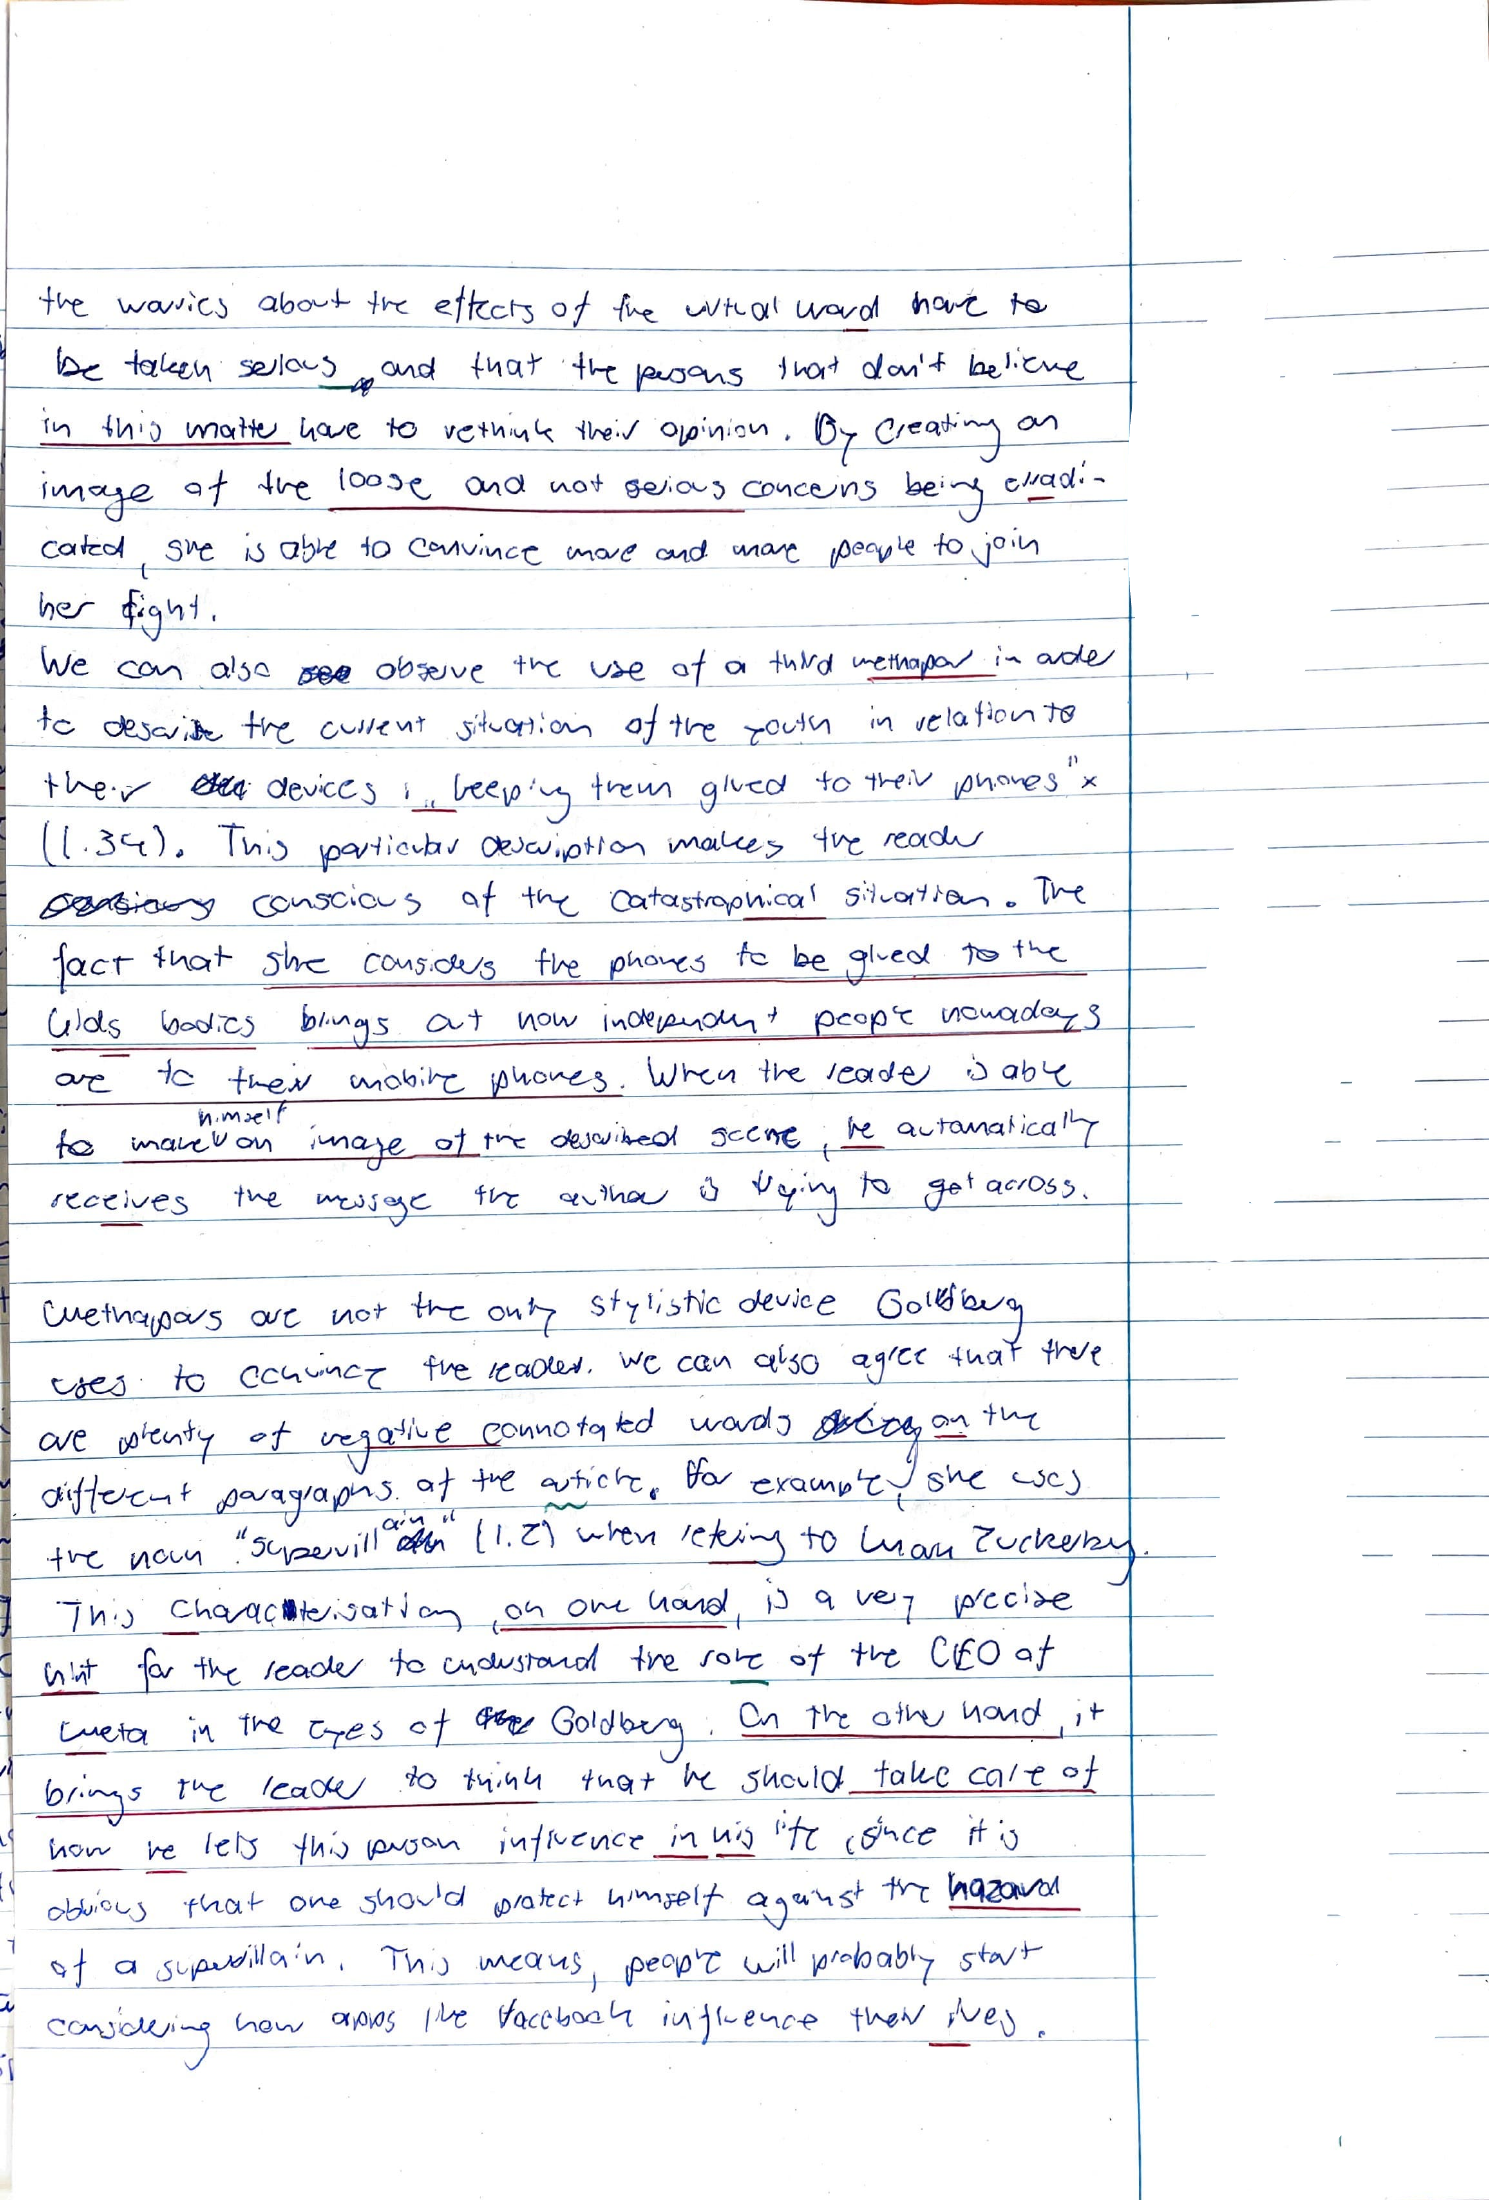 the worries about the effects of the virtual word have to
be taken serious, and that the persons that don't believe
in this matter have to rethink their opinion. By creating an
image of the loose and not serious concerns being erradi-
cated, she is able to convince more and more people to join
her fight.
We can also observe the use of a third methapor in order
to describe the current situation of the youth in relation to
their devices: „keeping them glued to their phones" x
(l.34). This particular description makes the reader
conscious of the catastrophical situation. The
fact that she considers the phones to be glued to the
kids bodies brings out how independent people nowadays
are to their mobile phones. When the reader is able
to make himself an image of the described scene, he automatically
receives the message the author is trying to get across.
Methapors are not the only stylistic device Goldberg
uses to convince the reader. We can also agree that there
are plenty of negative connotated words on the
different paragraphs of the article. For example, she uses
the noun "supervillain" (l.2) when refering to Marc Zuckerberg.
This characterisation, on one hand, is a very precise
hint for the reader to understand the role of the CEO of
Meta in the eyes of Goldberg. On the other hand, it
brings the reader to think that he should take care of
how he lets this person influence in his life, since it is
obvious that one should protect himself against the hazard
of a supervillain. This means, people will probably start
considering how apps like Facebook influence their lives.